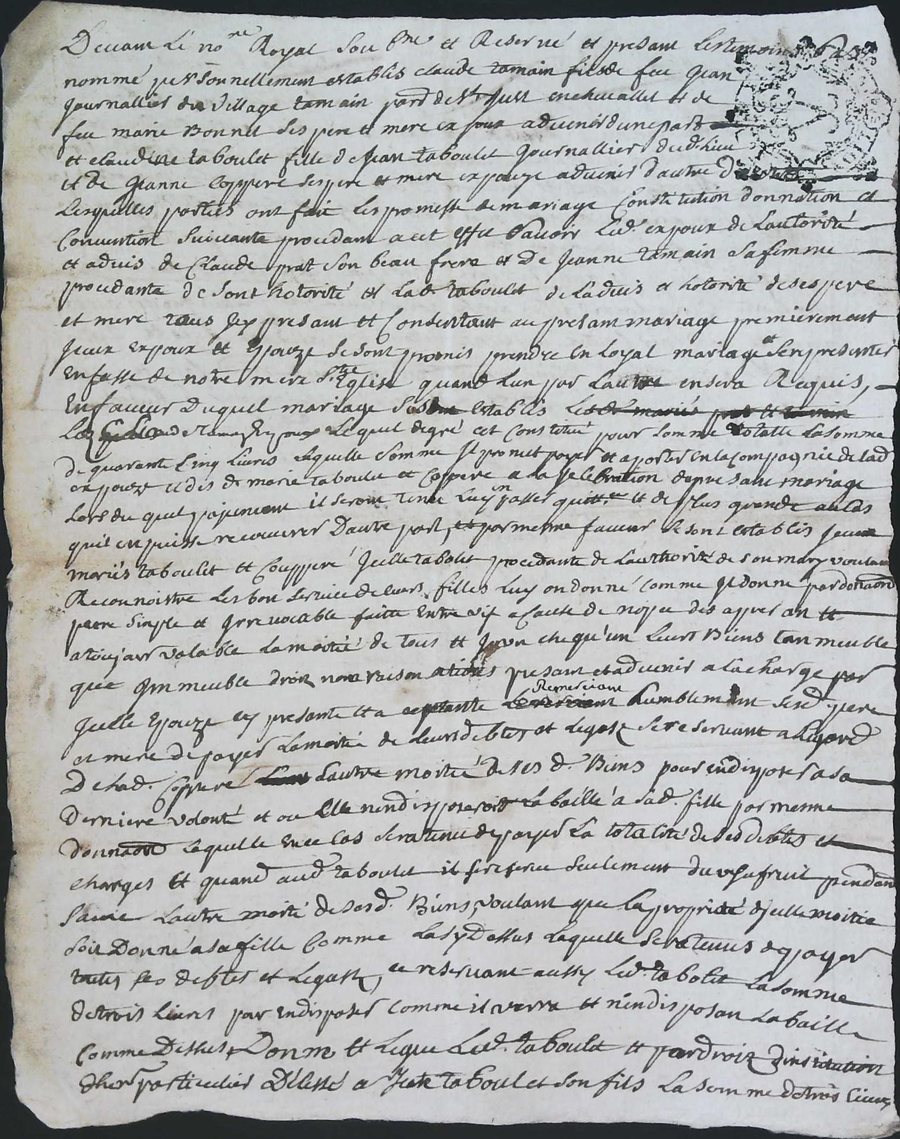 Devant Le no.re Royal Soubne et Reservé et presant Les temoins
nommé personnellement establis claude tamain fils de feu Jean
Journallier du Village tamain parr de St Just en chevallet et de
feu marie Bonnet ses pere et mere expoux advenir d'une part
et claudine taboulet fille de Jean taboulet Journallier dud. Lieu
et de Jeanne Coppere ses pere et mere expouze advenir d'autre
Lesquelles parties ont fait Les promesse de mariage Constitution donnation et
Convention Suivante procedant a cet effet Sçavoir Led. expoux de Lautorité
et advis de Claude prat Son beau frere et de Jeanne tamain Sa femme
procedante de Sont hotorité et Lad. taboulet de Ladvis et hotorité de ses pere
et mere tous Jcy presant et Consentant au presant mariage premierement
Jceux expoux et Epouze se sont promis prendre en Loyal mariage et Se representer
en fasse de notre mere Ste Eglise quand Lun par Lautre en sera Requis,
En faveur Duquel mariage Sest establis
Le Claude tamain expoux Lequel de gré cet Constitué pour Somme totalle La somme
de quarante Cinq Livres Laquelle Somme Jl promet payer et aporter en La compagnie de Lad.
expouze et dis de marie taboulet et Coppere a La Celebration du presant mariage
Lors du quel payement il seront tenus Luy en passer quittance et de plus grande au cas
quil en puisse recouvrer D'autre part, et par meme faveur se sont establis Jceux
mariés taboulet et Couppere Jcelle tabolet procedante de Lauthorité de son mary voulant
Reconnoistre Les bon Service de Leurs filles Luy on donné comme Jl donne par donation
pure Simple et Jrrevocable faitte Entre vif a Cause de nopce des apresan et
a toujour valable La moitié de tous et Jun chequ'un Leurs Biens tan meuble
que Jmmeuble droix nom raison actions presant et advenir a La charge par
Jcelle Epouze cy presante et acceptante Remerciant humblement Sesd. pere
et mere de payer La moitié de Leurs debtes et Legast Se reservant a Legard
De Lad. Coppere Lautre moitié de ses d. Biens pour en disposer a sa
derniere volonté et ou Elle nen disposeroit La baillé a Sad. fille par meme
donnaon Laquelle en ce cas Sera tenue de payer La totalité de ses debtes et
charges Et quand aud. taboulet il Se reserve Seulement Du usufruit pendant
Sa vie Lautre moitié de sesd. Biens, voulant que La propriété d'jcelle moitié
Soit Donné a Sa fille Comme La sy Dessus Laquelle Sera tenus de payer
toutes Ses debtes et Legast, ce reservant aussy Led. tabolet La somme
de trois Livres pour en disposer Comme il verra et n'en disposan La baille
Comme Dessus, Donne et Legue Led. taboulet et par droix d'institution
dher particulier Délessé a Jean taboulet son fils La somme de trois Livres